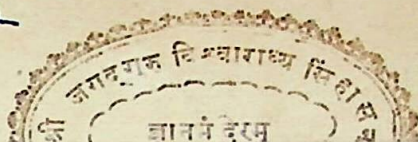 श्री जगद्गुरु विश्वाराध्य सिंहास
ज्ञानमंदिरम्